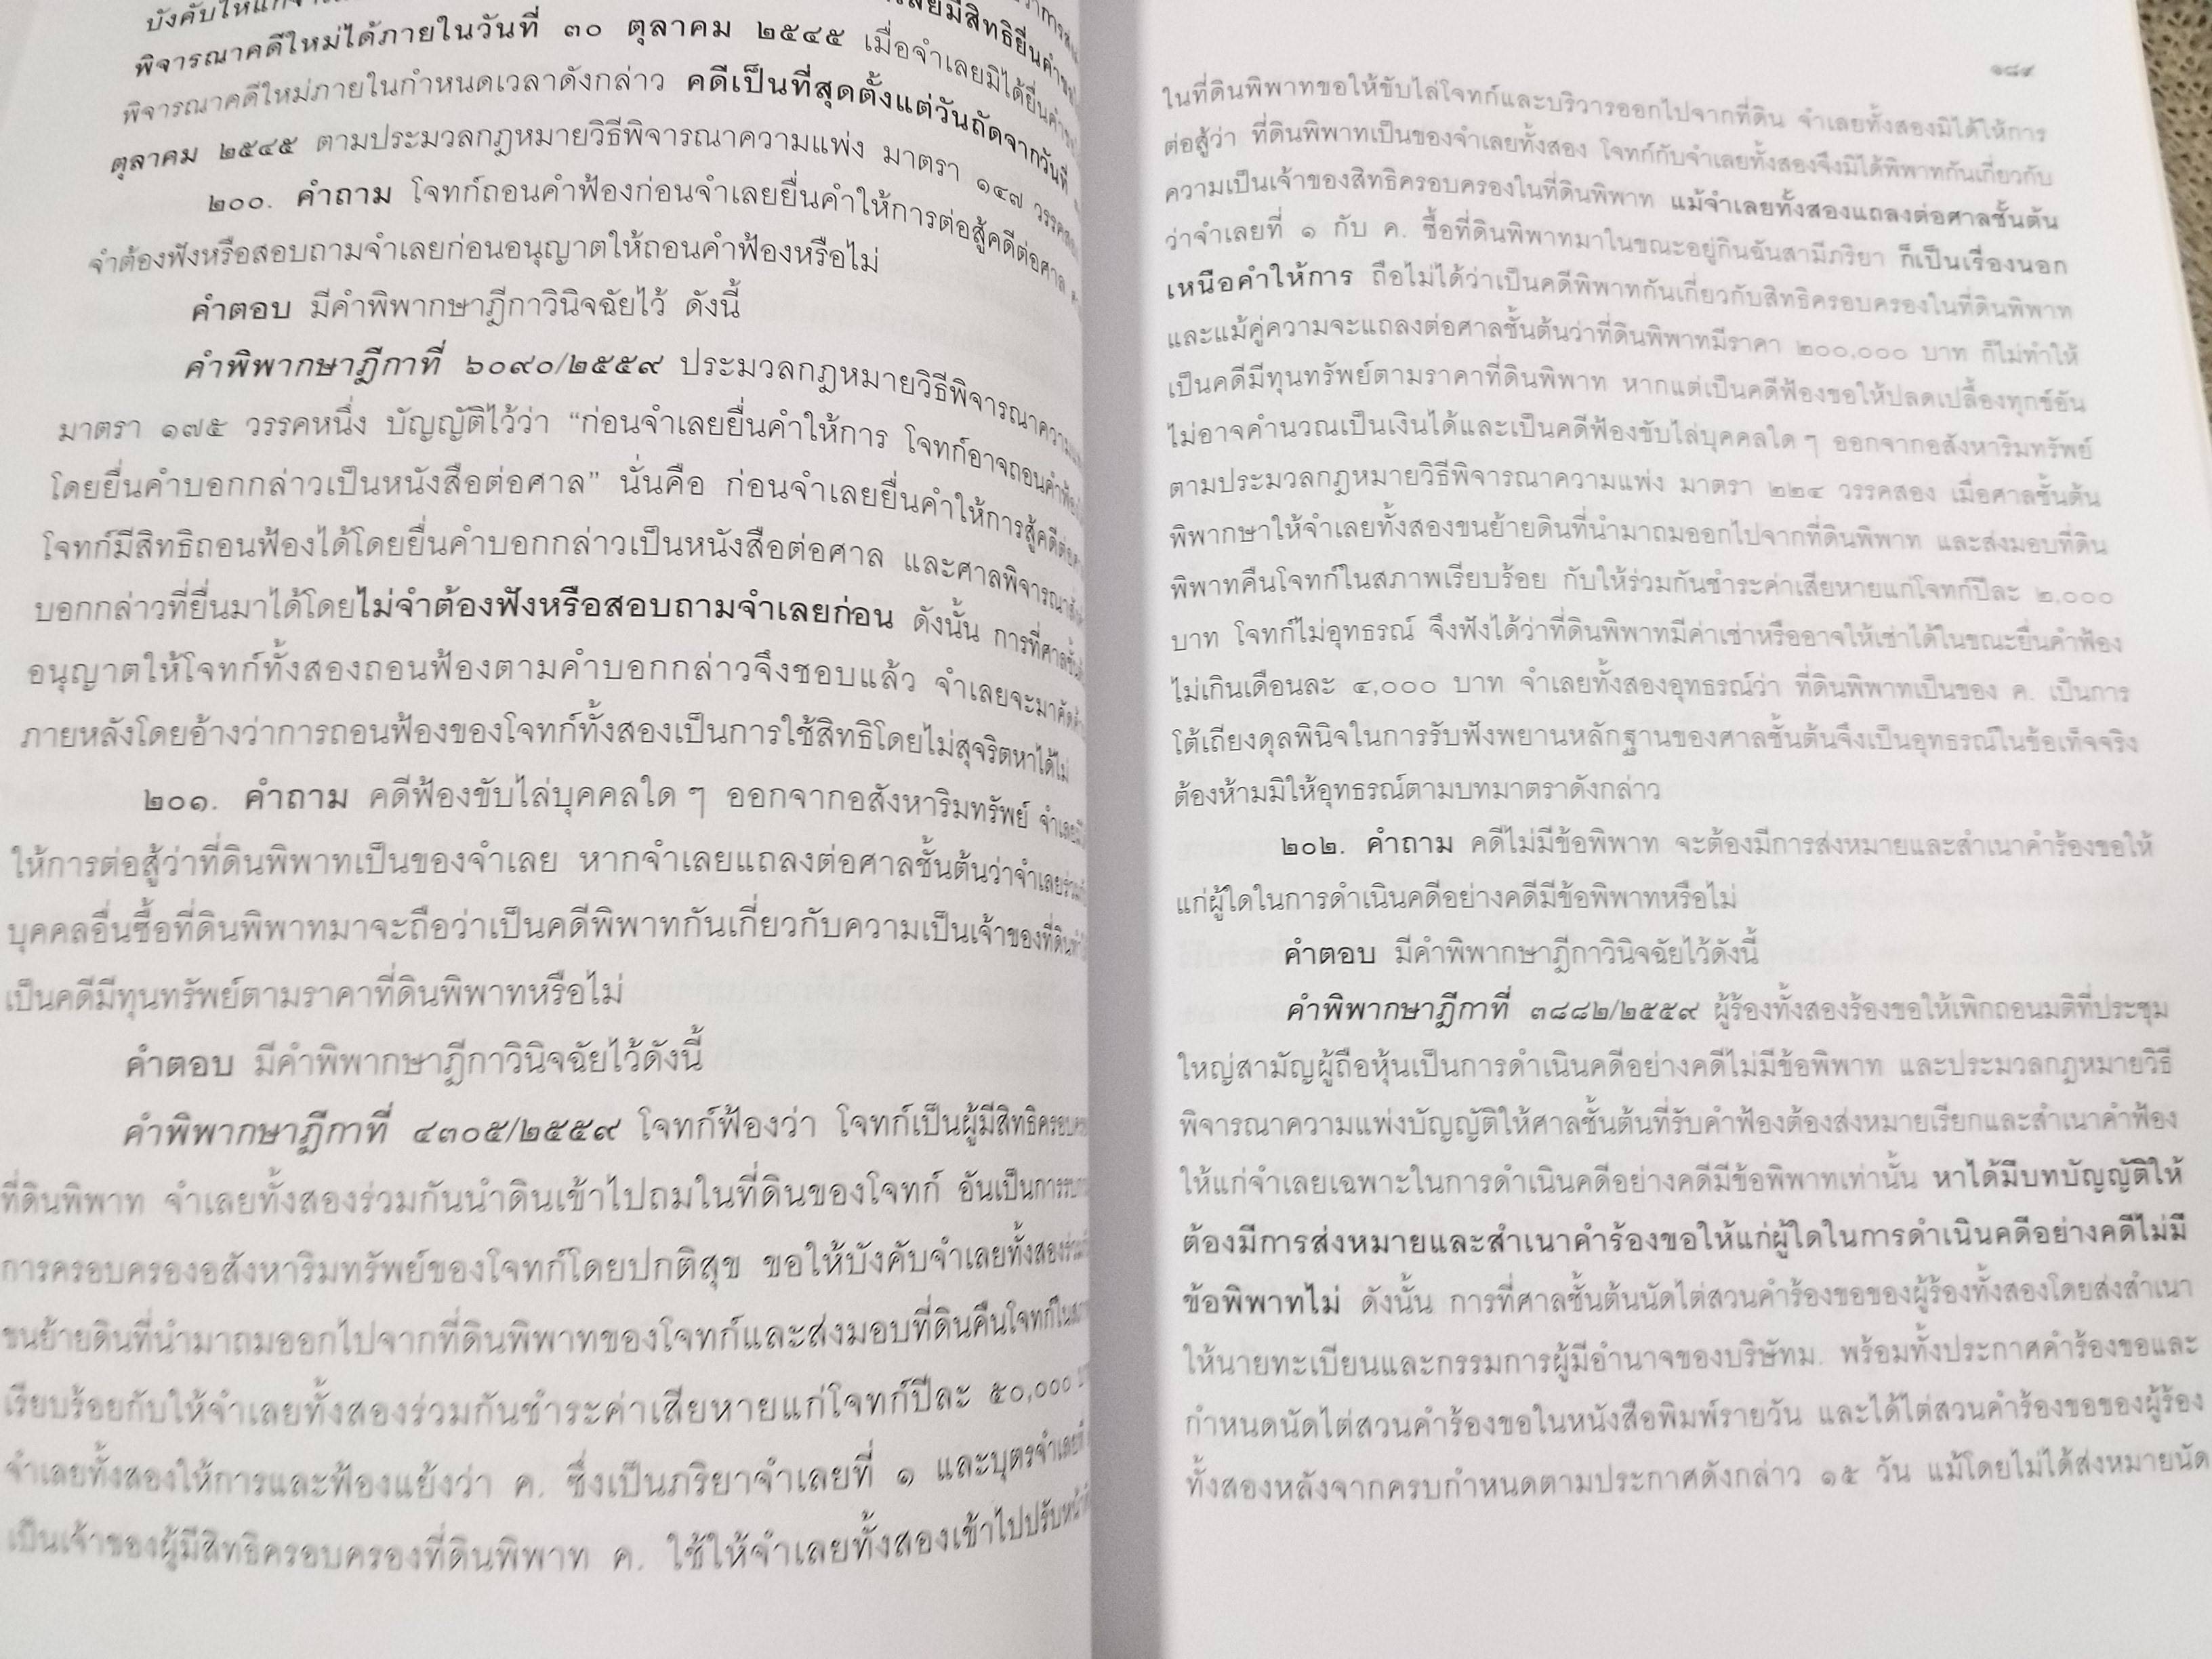 บังคับให้แก่จำเลย
พิจารณาคดีใหม่ได้ภายในวันที่ ๓๐ ตุลาคม ๒๕๔๕ เมื่อจำเลยมิได้ยื่นคำขอให้
พิจารณาคดีใหม่ภายในกำหนดเวลาดังกล่าว คดีเป็นที่สุดตั้งแต่วันถัดจากวันที่
ตุลาคม ๒๕๔๕ ตามประมวลกฎหมายวิธีพิจารณาความแพ่ง มาตรา ๑๔๗ วรรคสอง
๒๐๐. คำถาม โจทก์ถอนคำฟ้องก่อนจำเลยยื่นคำให้การต่อสู้คดีต่อศาล
จำต้องฟังหรือสอบถามจำเลยก่อนอนุญาตให้ถอนคำฟ้องหรือไม่
คำตอบ มีคำพิพากษาฎีกาวินิจฉัยไว้ ดังนี้
คำพิพากษาฎีกาที่ ๖๐๙๐/๒๕๕๙ ประมวลกฎหมายวิธีพิจารณาความแพ่ง
มาตรา ๑๗๕ วรรคหนึ่ง บัญญัติไว้ว่า “ก่อนจำเลยยื่นคำให้การ โจทก์อาจถอนคำฟ้อง
โดยยื่นคำบอกกล่าวเป็นหนังสือต่อศาล” นั่นคือ ก่อนจำเลยยื่นคำให้การสู้คดีต่อศาล
โจทก์มีสิทธิถอนฟ้องได้โดยยื่นคำบอกกล่าวเป็นหนังสือต่อศาล และศาลพิจารณา
บอกกล่าวที่ยื่นมาได้โดยไม่จำต้องฟังหรือสอบถามจำเลยก่อน ดังนั้น การที่ศาลชั้นต้น
อนุญาตให้โจทก์ทั้งสองถอนฟ้องตามคำบอกกล่าวจึงชอบแล้ว จำเลยจะมาคัดค้าน
ภายหลังโดยอ้างว่าการถอนฟ้องของโจทก์ทั้งสองเป็นการใช้สิทธิโดยไม่สุจริตหาได้ไม่
๒๐๑. คำถาม คดีฟ้องขับไล่บุคคลใด ๆ ออกจากอสังหาริมทรัพย์
ให้การต่อสู้ว่าที่ดินพิพาทเป็นของจำเลย หากจำเลยแถลงต่อศาลชั้นต้นว่าจำเลยร่วมกับ
บุคคลอื่นซื้อที่ดินพิพาทมาจะถือว่าเป็นคดีพิพาทกันเกี่ยวกับความเป็นเจ้าของที่ดิน
เป็นคดีมีทุนทรัพย์ตามราคาที่ดินพิพาทหรือไม่
คำตอบ มีคำพิพากษาฎีกาวินิจฉัยไว้ดังนี้
คำพิพากษาฎีกาที่ ๔๓๐๕/๒๕๕๙ โจทก์ฟ้องว่า โจทก์เป็นผู้มีสิทธิครอบครอง
ที่ดินพิพาท จำเลยทั้งสองร่วมกันนำดินเข้าไปถมในที่ดินของโจทก์ อันเป็นการรบกวน
การครอบครองอสังหาริมทรัพย์ของโจทก์โดยปกติสุข ขอให้บังคับจำเลยทั้งสองร่วมกัน
ขนย้ายดินที่นำมาถมออกไปจากที่ดินพิพาทของโจทก์และส่งมอบที่ดินคืนโจทก์ในสภาพ
เรียบร้อยกับให้จำเลยทั้งสองร่วมกันชำระค่าเสียหายแก่โจทก์ปีละ ๕๐,๐๐๐
จำเลยทั้งสองให้การและฟ้องแย้งว่า ค. ซึ่งเป็นภริยาจำเลยที่ ๑ และบุตรจำเลยที่
เป็นเจ้าของผู้มีสิทธิครอบครองที่ดินพิพาท ค. ใช้ให้จำเลยทั้งสองเข้าไปปรับหน้าดิน
๑๘๙
ในที่ดินพิพาทขอให้ขับไล่โจทก์และบริวารออกไปจากที่ดิน จำเลยทั้งสองมิได้ให้การ
ต่อสู้ว่า ที่ดินพิพาทเป็นของจำเลยทั้งสอง โจทก์กับจำเลยทั้งสองจึงมิได้พิพาทกันเกี่ยวกับ
ความเป็นเจ้าของสิทธิครอบครองในที่ดินพิพาท แม้จำเลยทั้งสองแถลงต่อศาลชั้นต้น
ว่าจำเลยที่ ๑ กับ ค. ซื้อที่ดินพิพาทมาในขณะอยู่กินฉันสามีภริยา ก็เป็นเรื่องนอก
เหนือคำให้การ ถือไม่ได้ว่าเป็นคดีพิพาทกันเกี่ยวกับสิทธิครอบครองในที่ดินพิพาท
และแม้คู่ความจะแถลงต่อศาลชั้นต้นว่าที่ดินพิพาทมีราคา ๒๐๐,๐๐๐ บาท ก็ไม่ทำให้
เป็นคดีมีทุนทรัพย์ตามราคาที่ดินพิพาท หากแต่เป็นคดีฟ้องขอให้ปลดเปลื้องทุกข์อัน
ไม่อาจคำนวณเป็นเงินได้และเป็นคดีฟ้องขับไล่บุคคลใด ๆ ออกจากอสังหาริมทรัพย์
ตามประมวลกฎหมายวิธีพิจารณาความแพ่ง มาตรา ๒๒๔ วรรคสอง เมื่อศาลชั้นต้น
พิพากษาให้จำเลยทั้งสองขนย้ายดินที่นำมาถมออกไปจากที่ดินพิพาท และส่งมอบที่ดิน
พิพาทคืนโจทก์ในสภาพเรียบร้อย กับให้ร่วมกันชำระค่าเสียหายแก่โจทก์ปีละ ๒,๐๐๐
บาท โจทก์ไม่อุทธรณ์ จึงฟังได้ว่าที่ดินพิพาทมีค่าเช่าหรืออาจให้เช่าได้ในขณะยื่นคำฟ้อง
ไม่เกินเดือนละ ๔,๐๐๐ บาท จำเลยทั้งสองอุทธรณ์ว่า ที่ดินพิพาทเป็นของ ค. เป็นการ
โต้เถียงดุลพินิจในการรับฟังพยานหลักฐานของศาลชั้นต้นจึงเป็นอุทธรณ์ในข้อเท็จจริง
ต้องห้ามมิให้อุทธรณ์ตามบทมาตราดังกล่าว
๒๐๒. คำถาม คดีไม่มีข้อพิพาท จะต้องมีการส่งหมายและสำเนาคำร้องขอให้
แก่ผู้ใดในการดำเนินคดีอย่างคดีมีข้อพิพาทหรือไม่
คำตอบ มีคำพิพากษาฎีกาวินิจฉัยไว้ดังนี้
คำพิพากษาฎีกาที่ ๓๘๘๒/๒๕๕๙ ผู้ร้องทั้งสองร้องขอให้เพิกถอนมติที่ประชุม
ใหญ่สามัญผู้ถือหุ้นเป็นการดำเนินคดีอย่างคดีไม่มีข้อพิพาท และประมวลกฎหมายวิธี
พิจารณาความแพ่งบัญญัติให้ศาลชั้นต้นที่รับคำฟ้องต้องส่งหมายเรียกและสำเนาคำฟ้อง
ให้แก่จำเลยเฉพาะในการดำเนินคดีอย่างคดีมีข้อพิพาทเท่านั้น หาได้มีบทบัญญัติให้
ต้องมีการส่งหมายและสำเนาคำร้องขอให้แก่ผู้ใดในการดำเนินคดีอย่างคดีไม่มี
ข้อพิพาทไม่ ดังนั้น การที่ศาลชั้นต้นนัดไต่สวนคำร้องขอของผู้ร้องทั้งสองโดยส่งสำเนา
ให้นายทะเบียนและกรรมการผู้มีอำนาจของบริษัทม. พร้อมทั้งประกาศคำร้องขอและ
กำหนดนัดไต่สวนคำร้องขอในหนังสือพิมพ์รายวัน และได้ไต่สวนคำร้องขอของผู้ร้อง
ทั้งสองหลังจากครบกำหนดตามประกาศดังกล่าว ๑๕ วัน แม้โดยไม่ได้ส่งหมายนัด